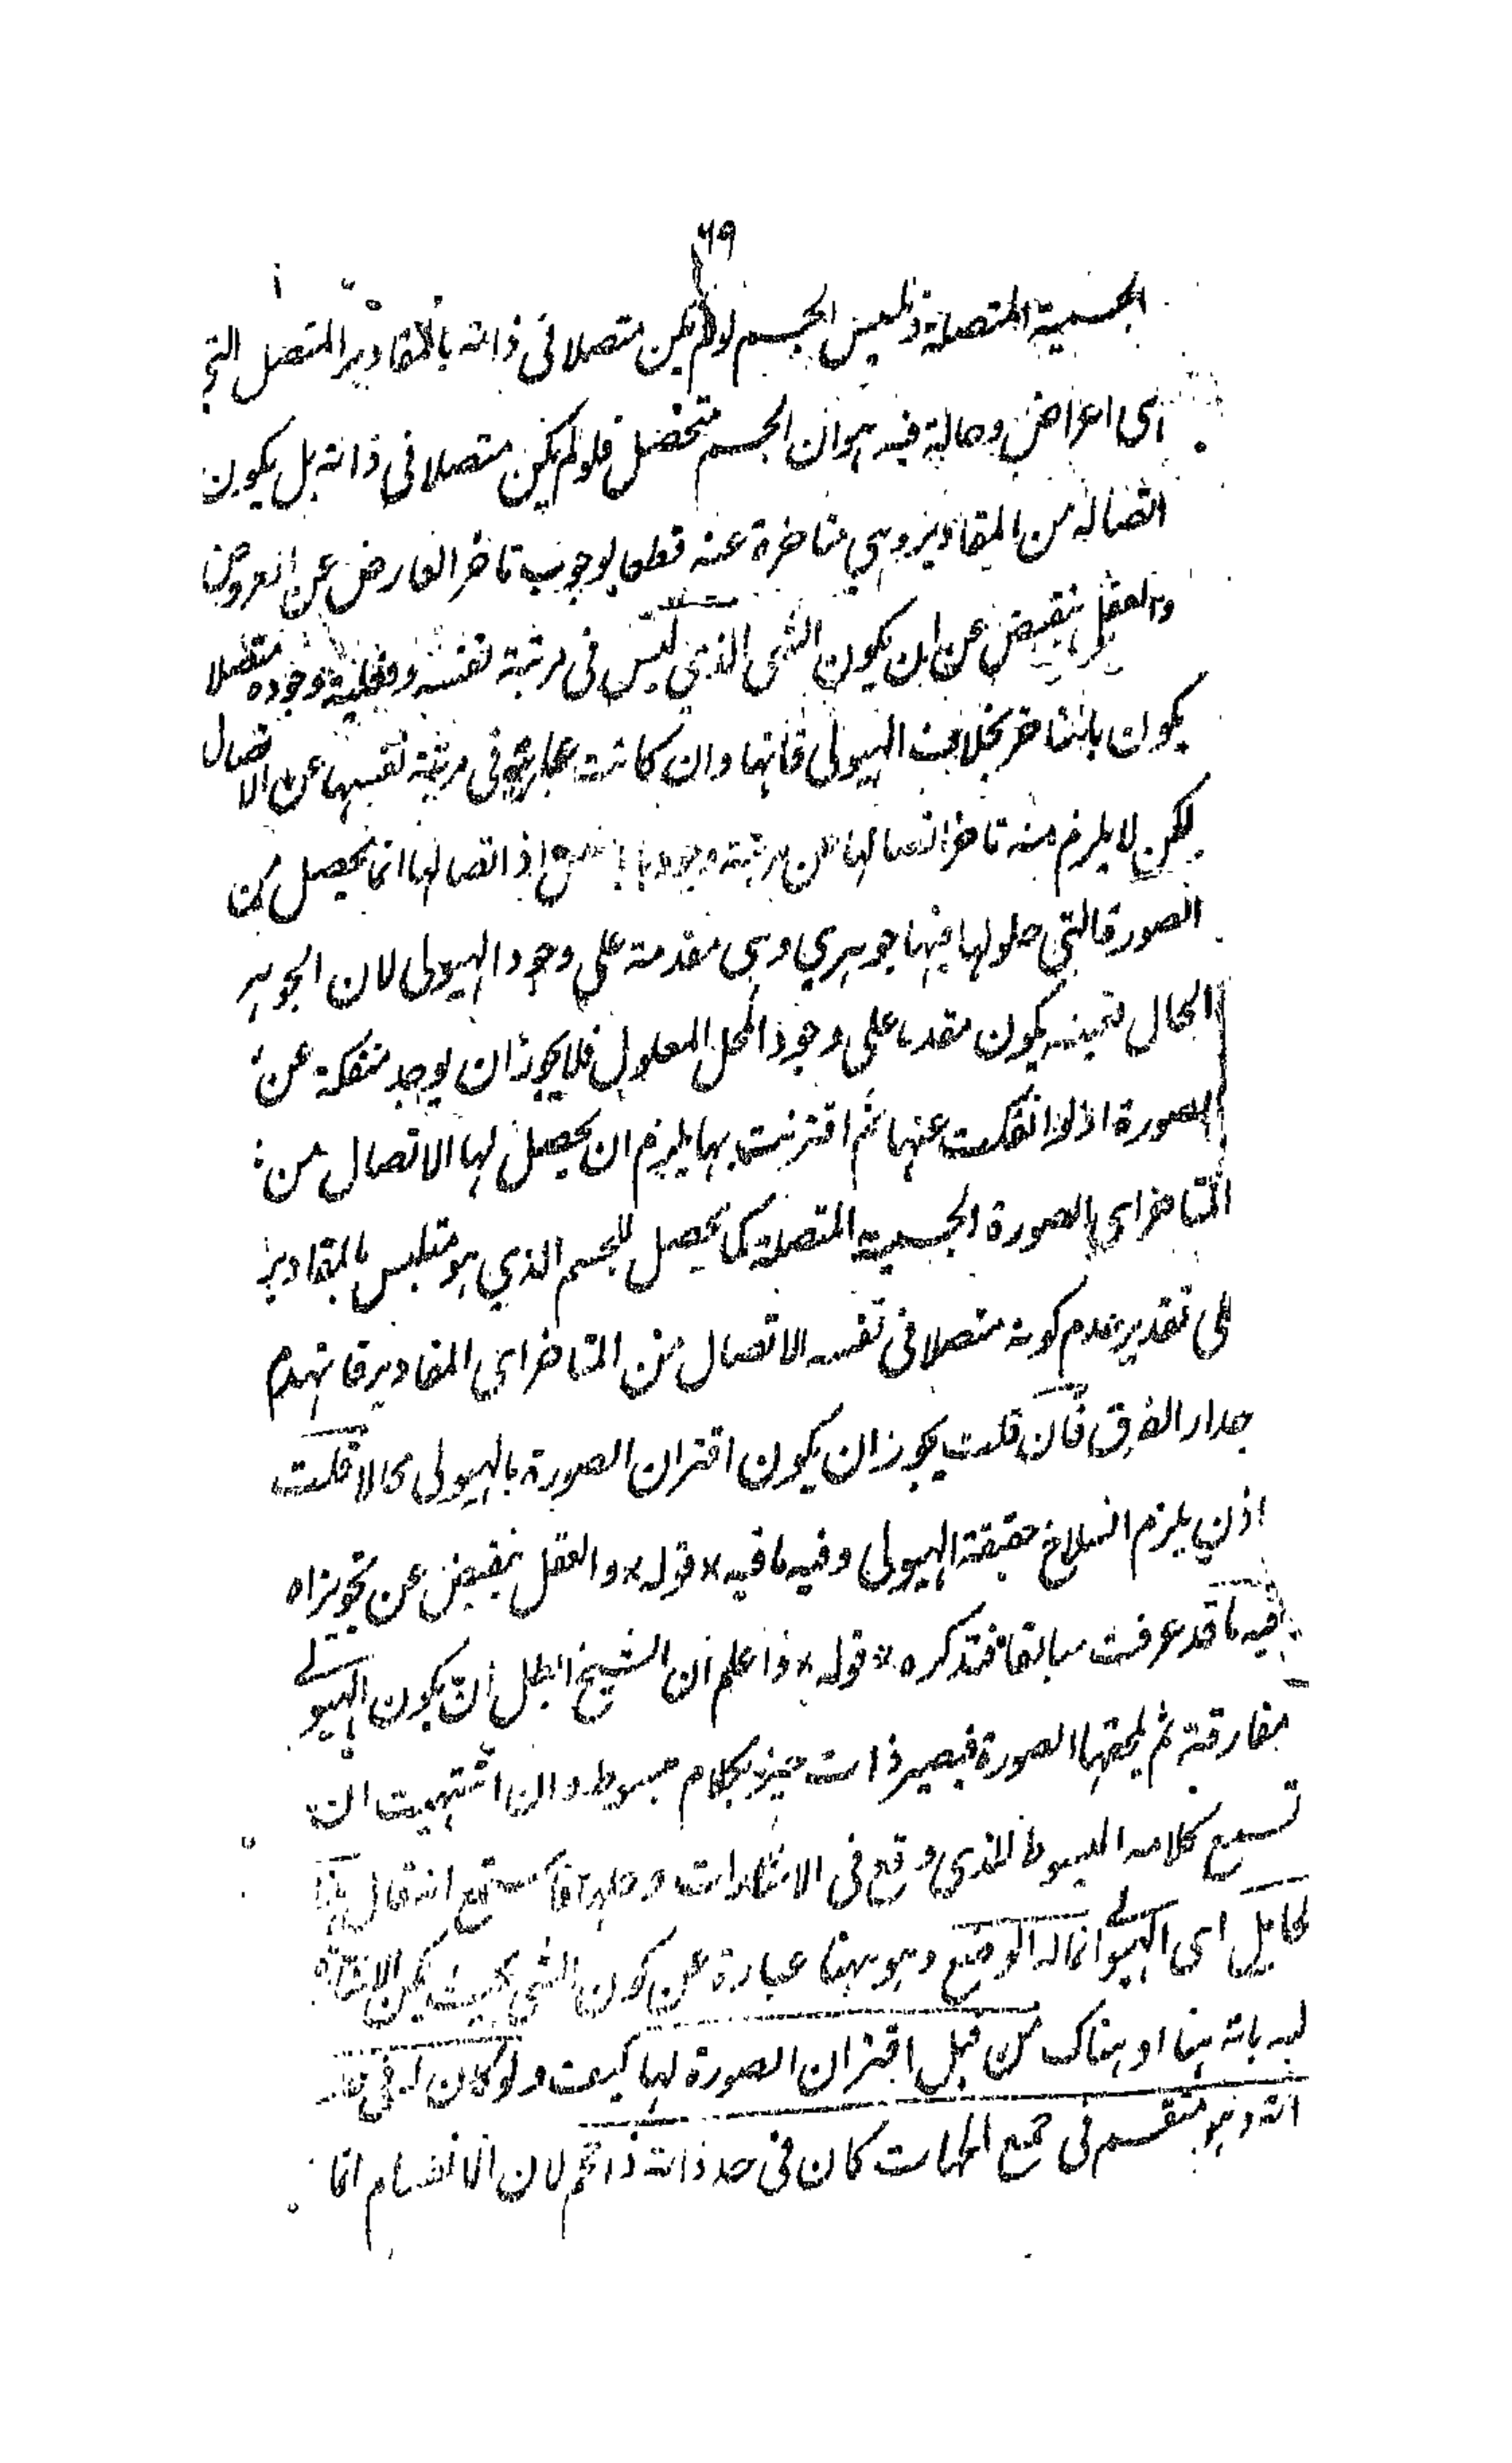 ٦٩
الجسمية المتصلة وتلبس الجسم لو لم يكن متصلا فى ذاته بالمقادير المتصل التى
هى اعراض وحالة فيه هو ان الجسم متحصل فلو لم يكن متصلا فى ذاته بل يكون
اتصاله من المقادير وهي متاخرة عنه قطعا لوجوب تاخر العارض عن المعروض
والعقل ينقبض عن ان يكون الشى الذي ليس فى مرتبة نفسه وفعلية وجوده متصلا
يكون بالمتاخر بخلاف الهيولى فانها وان كانت عارية فى مرتبة نفسها عن الاتصال
لكن لا يلزم منه تاخر اتصالها عن مرتبة وجودها اذ اتصالها انما يحصل من
الصورة التى حلولها فيها جوهري وهى مقدمة على وجود الهيولى لان الجوهر
الحال بعينه يكون مقدما على وجود المحل المعلول فلا يجوز ان يوجد منفكة عن
الصورة اذ لو انفكت عنها ثم اقترنت بها يلزم ان يحصل لها الاتصال من
المتاخر اى بالصورة الجسمية المتصلة كما يحصل للجسم الذي هو متلبس بالمقادير
على تقدير عدم كونه متصلا فى نفسه الاتصال من المتاخر اى المقادير فانهدم
جدار الفرق فان قلت يجوز ان يكون اقتران الصورة بالهيولى محالا قلت
اذن يلزم انسلاخ حقيقة الهيولى وفيه ما فيه * قوله * والعقل ينقبض عن تجويزه اه
فيه ما قد عرفت سابقا فتذكره * قوله * واعلم ان الشيخ ابطل ان يكون الهيولى
مفارقة ثم يلحقها الصورة فيصير ذات حيز بكلام مبسوط وان اشتهيت ان
تسمع كلامه المبسوط الذي وقع فى الاشارات فاستمع انه قال هذا
الحامل اى الهيولى انما له الوضع وهو ههنا عبارة عن كون الشى بحيث يمكن الاشارة
اليه بانه هنا او هناك من قبل اقتران الصورة لها كيف ولو كان له فى حد
ذاته وهو منقسم فى جميع الجهات كان فى حد ذاته ذا حجم لان الانقسام انما